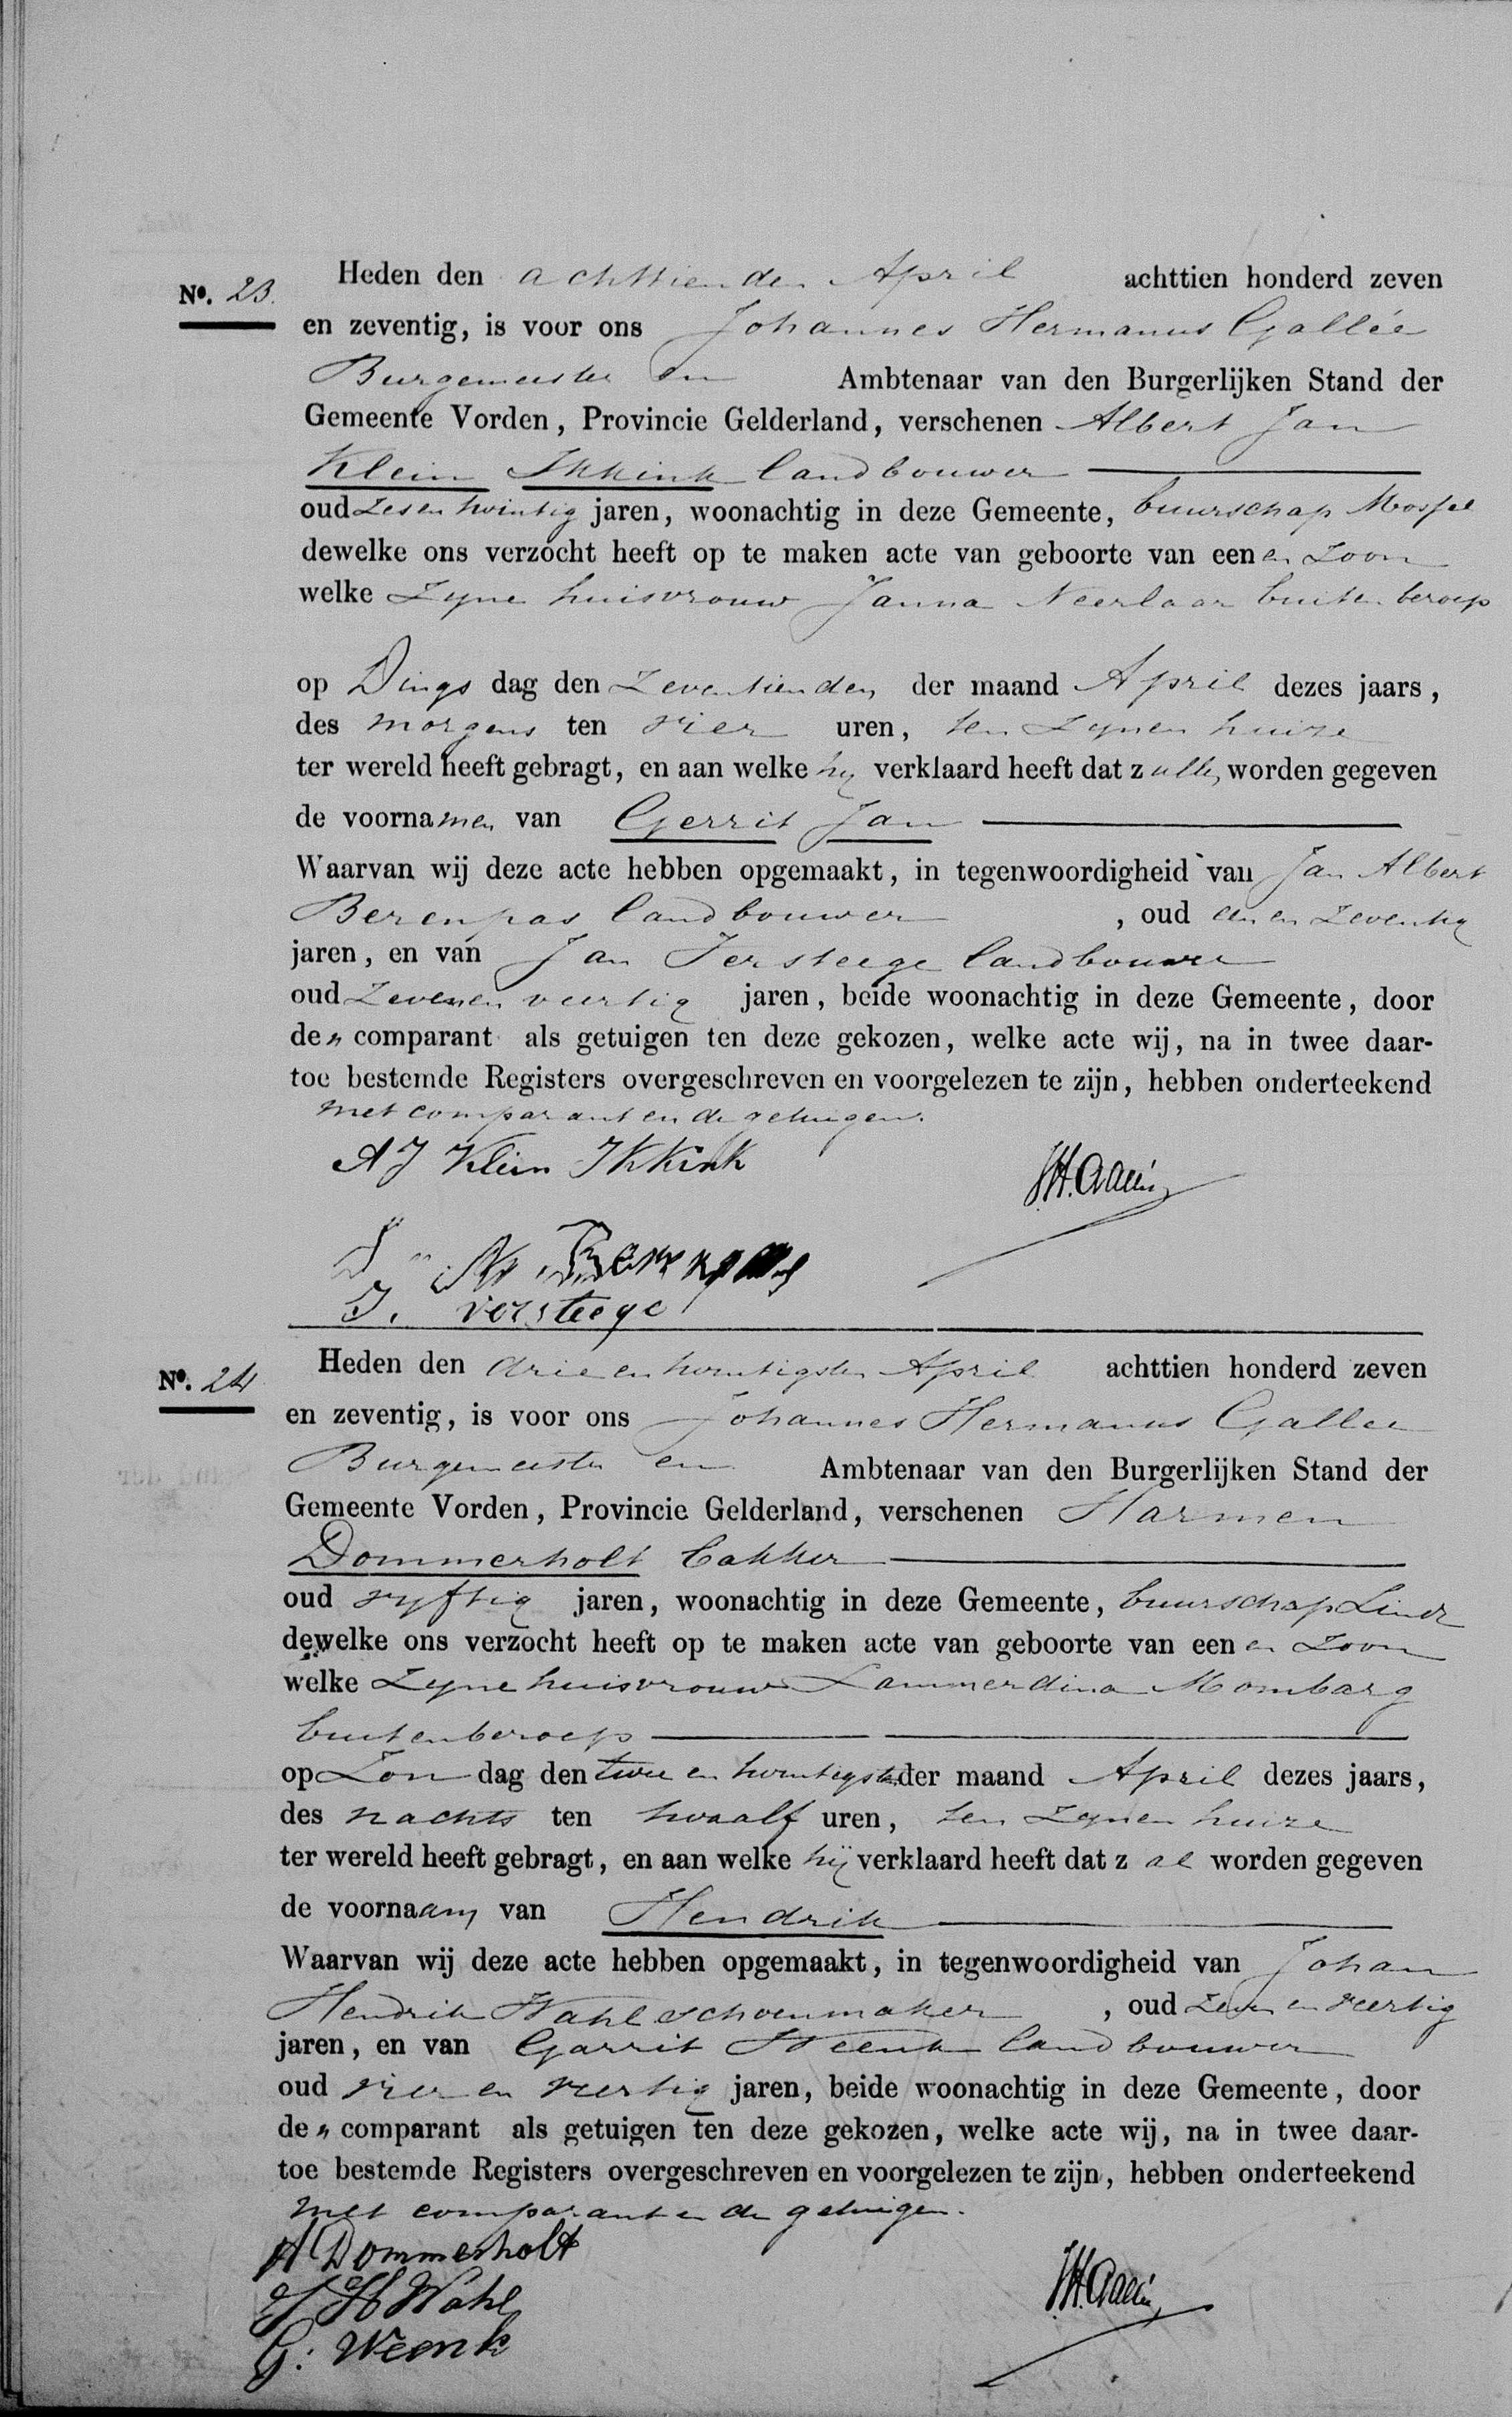 Nº. 23.
Heden den achttienden April achttien honderd zeven
en zeventig, is voor ons Johannes Hermanus Gallée
Burgemeester en Ambtenaar van den Burgerlijken Stand der
Gemeente Vorden, Provincie Gelderland, verschenen Albert Jan
Klein Ikkink landbouwer
oud zesentwintig jaren, woonachtig in deze Gemeente, buurschap Mossel
dewelke ons verzocht heeft op te maken acte van geboorte van eenen zoon
welke zyne huisvrouw Janna Neerlaar buiten beroep
op Dings dag den zeventienden der maand April dezes jaars,
des morgens ten vier uren, ten zynen huize
ter wereld heeft gebragt, en aan welke hy verklaard heeft dat zullen worden gegeven
de voornamen van Gerrit Jan
Waarvan wij deze acte hebben opgemaakt, in tegenwoordigheid van Jan Albert
Berenpas landbouwer, oud een en zeventig
jaren, en van Jan Versteege landbouwer
oud zevenen veertig jaren, beide woonachtig in deze Gemeente, door
den comparant als getuigen ten deze gekozen, welke acte wij, na in twee daar-
toe bestemde Registers overgeschreven en voorgelezen te zijn, hebben onderteekend
met comparant en de getuigen.
A J Klein Ikkink
JH. Gallée
Berenpas
J. versteege
Nº. 24
Heden den drie en twintigsten April achttien honderd zeven
en zeventig, is voor ons Johannes Hermanus Gallee
Burgemeester en Ambtenaar van den Burgerlijken Stand der
Gemeente Vorden, Provincie Gelderland, verschenen Harmen
Dommerholt bakker
oud vyftig jaren, woonachtig in deze Gemeente, buurschap Linde
dewelke ons verzocht heeft op te maken acte van geboorte van eenen zoon
welke zyne huisvrouw Lammerdina Mombarg
buitenberoep
op Zondag den twee en twintigsten der maand April dezes jaars,
des nachts ten twaalf uren, ten zynen huize
ter wereld heeft gebragt, en aan welke hij verklaard heeft dat zal worden gegeven
de voornaam van Hendrik
Waarvan wij deze acte hebben opgemaakt, in tegenwoordigheid van Johan
Hendrik Wahl schoenmaker, oud zeven en veertig
jaren, en van Garrit Weenk landbouwer
oud vier en veertig jaren, beide woonachtig in deze Gemeente, door
den comparant als getuigen ten deze gekozen, welke acte wij, na in twee daar-
toe bestemde Registers overgeschreven en voorgelezen te zijn, hebben onderteekend
met comparant en de getuigen.
H Dommerholt
J H Wahl
JH. Gallée
G: Weenk